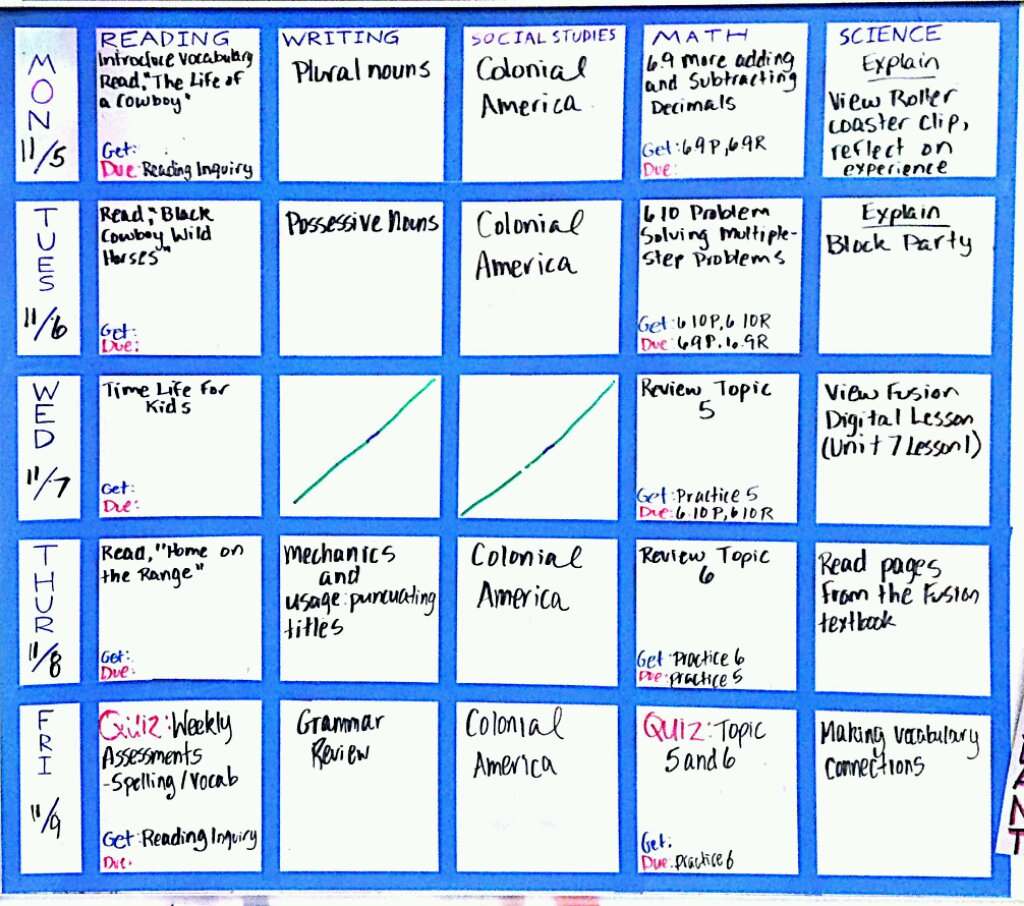 READING
WRITING
SOCIAL STUDIES
MATH
SCIENCE
MON
11/5
Introduce vocabulary
Read, "The Life of
a Cowboy"
Get:
Due: Reading Inquiry
Plural nouns
Colonial
America
6.9 more adding
and Subtracting
Decimals
Get: 6.9P, 6.9R
Due:
Explain
View Roller
coaster clip,
reflect on
experience
TUES
11/6
Read, "Black
Cowboy Wild
Horses"
Get:
Due:
Possessive Nouns
Colonial
America
6.10 Problem
Solving Multiple-
Step Problems
Get: 6.10P, 6.10R
Due: 6.9P, 6.9R
Explain
Block Party
WED
11/7
Time Life For
Kids
Get:
Due:
Review Topic
5
Get: Practice 5
Due: 6.10P, 6.10R
View Fusion
Digital Lesson
(Unit 7 Lesson 1)
THUR
11/8
Read, "Home on
the Range"
Get:
Due:
Mechanics
and
usage: puncuating
titles
Colonial
America
Review Topic
6
Get: Practice 6
Due: practice 5
Read pages
from the Fusion
textbook
FRI
11/9
Quiz: Weekly
Assessments
-Spelling/Vocab
Get: Reading Inquiry
Due:
Grammar
Review
Colonial
America
QUIZ: Topic
5 and 6
Get:
Due: practice 6
Making vocabulary
connections